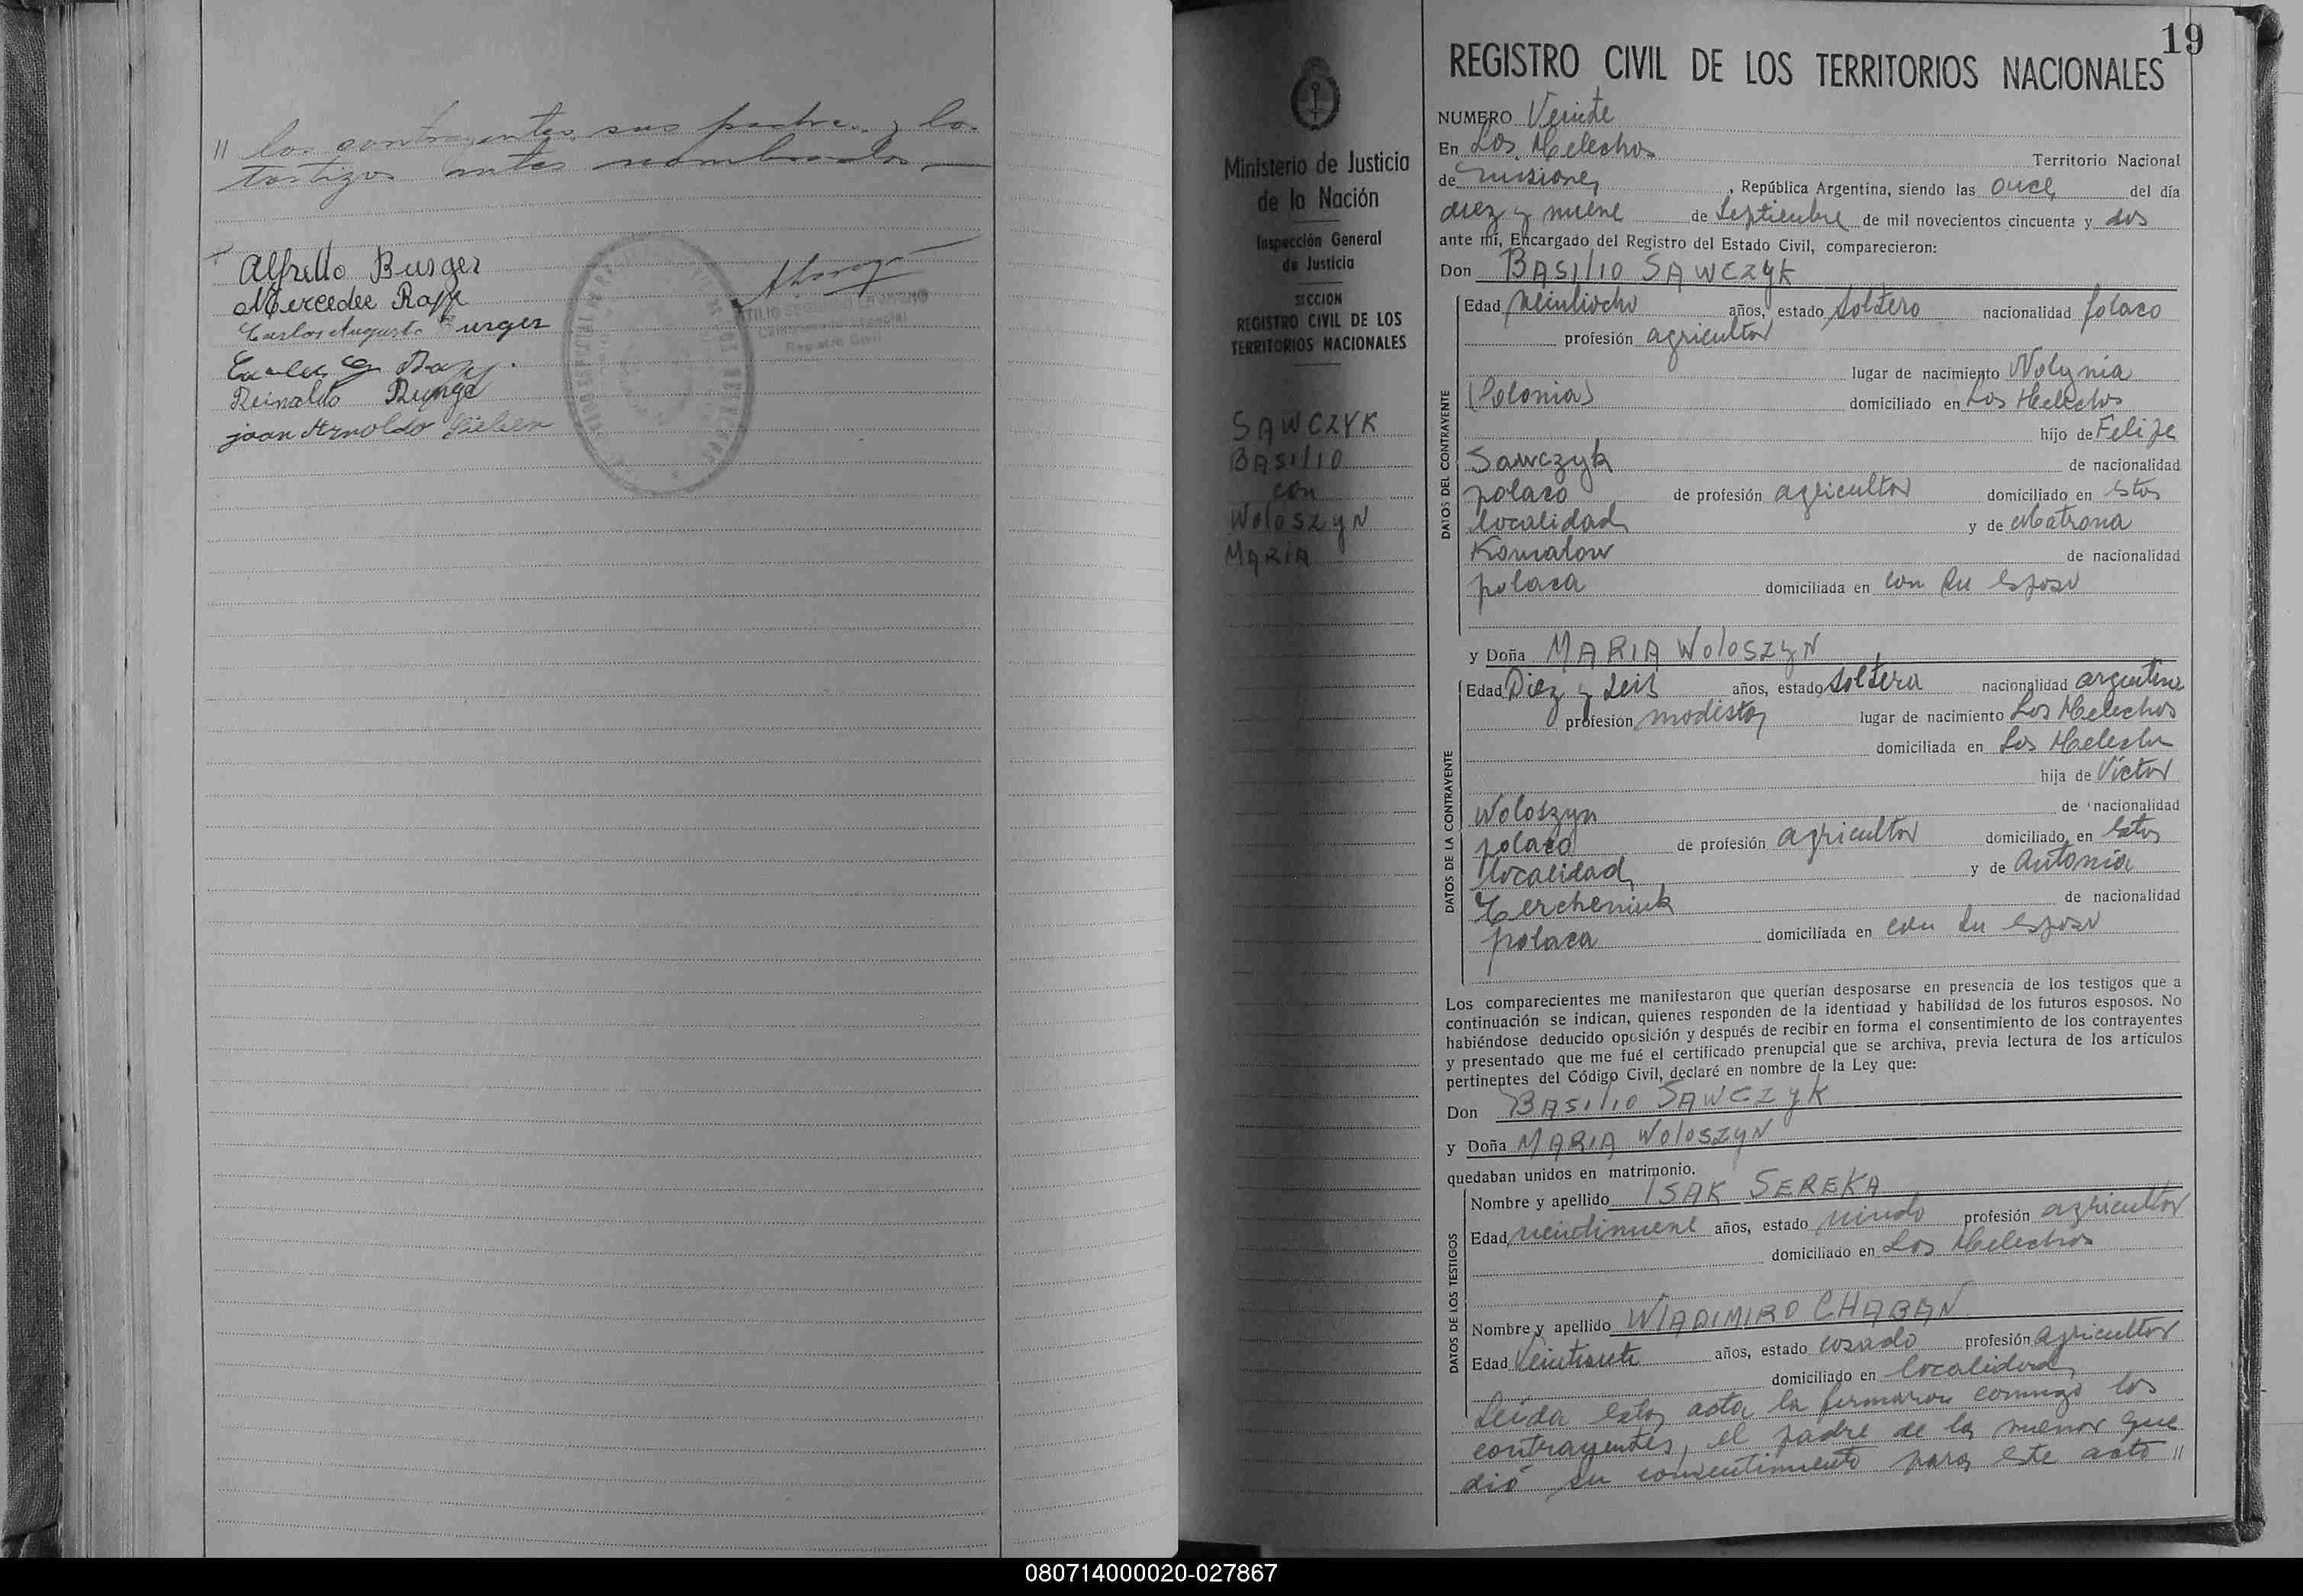 " los contrayentes sus padres y los
testigos antes nombrados
Alfredo Burger
Mercedes Rapp
Carlos Augusto Burger
Carlos G Rapp
Reinaldo Runge
juan Arnoldo
Registro Civil
Ministerio de Justicia
de la Nación
Inspección General
de Justicia
SECCION
REGISTRO CIVIL DE LOS
TERRITORIOS NACIONALES
SAWCZYK
BASILIO
con
WOLOSZYN
MARIA
19
REGISTRO CIVIL DE LOS TERRITORIOS NACIONALES
NUMERO Veinte
En Los Helechos Territorio Nacional
de Misiones, República Argentina, siendo las once del día
diez y nueve de Septiembre de mil novecientos cincuenta y dos
ante mí, Encargado del Registro del Estado Civil, comparecieron:
Don BASILIO SAWCZYK
DATOS DEL CONTRAYENTE
Edad veintiocho años, estado soltero nacionalidad polaco
profesión agricultor
lugar de nacimiento Wolynia
(Polonia) domiciliado en Los Helechos
hijo de Felipe
Sawczyk de nacionalidad
polaco de profesión agricultor domiciliado en esta
localidad y de Matrona
Komalow de nacionalidad
polaca domiciliada en con su esposo
y Doña MARIA WOLOSZYN
DATOS DE LA CONTRAYENTE
Edad Diez y seis años, estado soltera nacionalidad argentina
profesión modista lugar de nacimiento Los Helechos
domiciliada en Los Helechos
hija de Victor
Woloszyn de nacionalidad
polaco de profesión agricultor domiciliado en esta
localidad y de Antonia
Tercheniuk de nacionalidad
polaca domiciliada en con su esposo
Los comparecientes me manifestaron que querían desposarse en presencia de los testigos que a
continuación se indican, quienes responden de la identidad y habilidad de los futuros esposos. No
habiéndose deducido oposición y después de recibir en forma el consentimiento de los contrayentes
y presentado que me fué el certificado prenupcial que se archiva, previa lectura de los artículos
pertinentes del Código Civil, declaré en nombre de la Ley que:
Don BASILIO SAWCZYK
y Doña MARIA WOLOSZYN
quedaban unidos en matrimonio.
DATOS DE LOS TESTIGOS
Nombre y apellido ISAK SEREKA
Edad veintinueve años, estado viudo profesión agricultor
domiciliado en Los Helechos
Nombre y apellido WLADIMIRO CHABAN
Edad Veintisiete años, estado casado profesión agricultor
domiciliado en localidad
Leída esta acta la firmaron conmigo los
contrayentes, el padre de la menor que
dió su consentimiento para este acto "
080714000020-027867